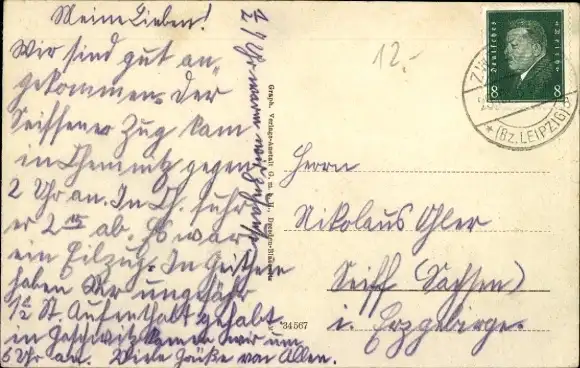 Meine Lieben!
Wir sind gut an-
gekommen. Der
Seiffener Zug kam
in Chemnitz gegen
2 Uhr an. In Ch. fuhr
er 2 ab. Es war
ein Eilzug. In
haben wir ungefähr
1 1/2 St. Aufenthalt gehabt
in kamen wir um
6 Uhr an. Viele Grüße von Allen.
Uhr waren wir
12.-
Graph. Verlags-Anstalt G. m. b. H., Dresden
34567
Deutsches Reich
8 8
(Bz. LEIPZIG)
Herrn
Nikolaus Ohler
Seiff (Sachsen)
i. Erzgebirge.